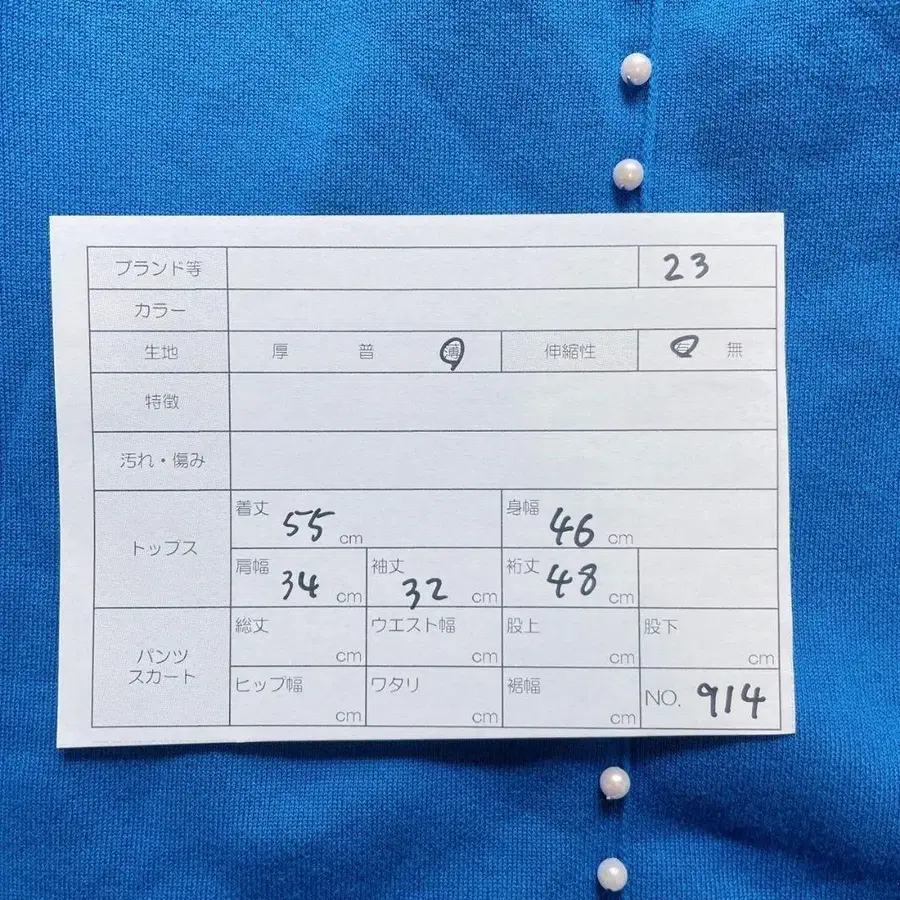 ブランド等 23
カラー
生地 厚 普 薄 伸縮性 有 無
特徴
汚れ・傷み
トップス
着丈 55 cm 身幅 46 cm
肩幅 34 cm 袖丈 32 cm 裄丈 48 cm
パンツ
スカート
総丈 cm ウエスト幅 cm 股上 cm 股下 cm
ヒップ幅 cm ワタリ cm 裾幅 cm NO. 914